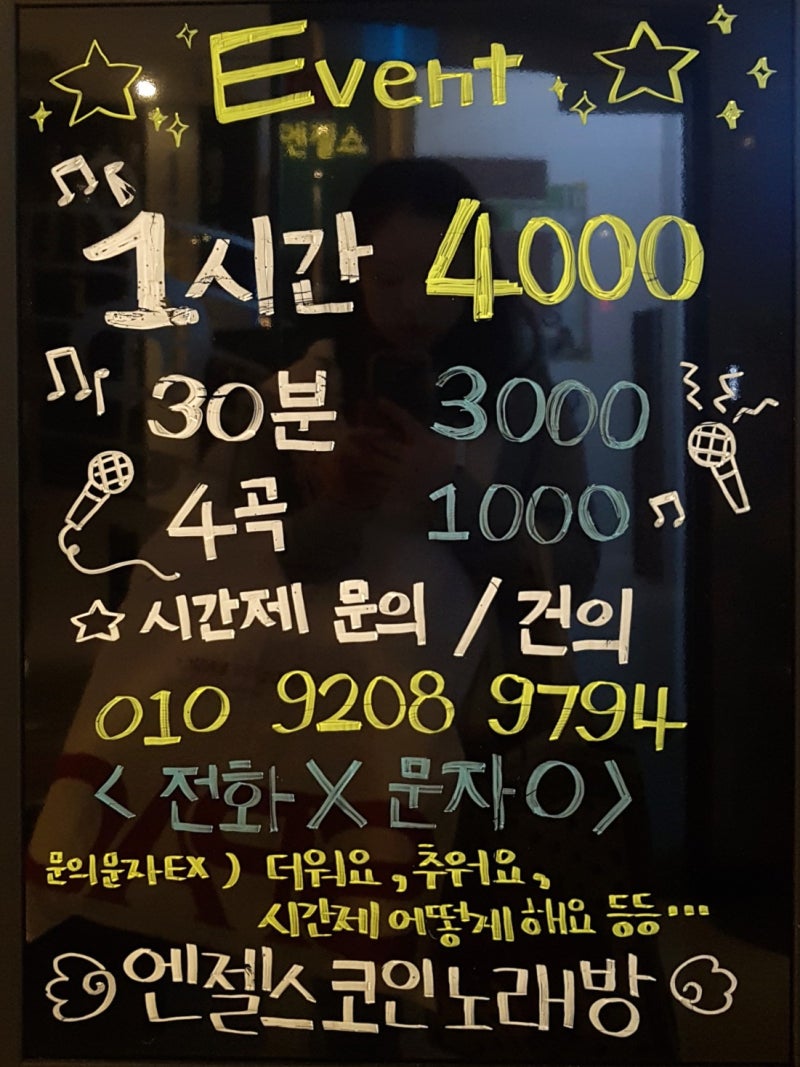 Event
1시간 4000
30분 3000
4곡 1000
시간제 문의 / 건의
010 9208 9794
< 전화 X 문자 O >
문의문자 EX ) 더워요, 추워요,
시간제 어떻게 해요 등등...
엔젤스코인노래방